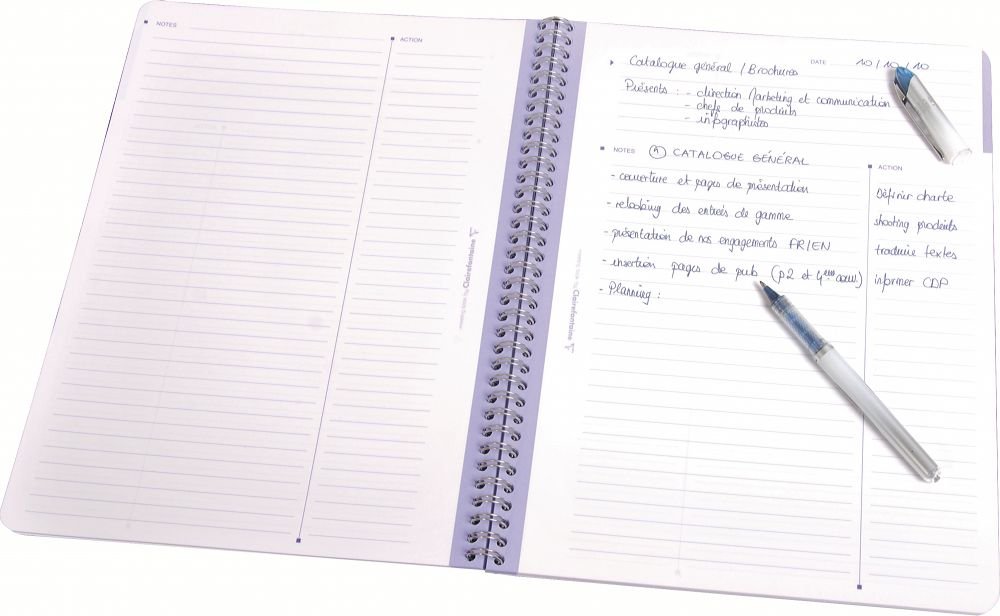 NOTES
ACTION
Clairefontaine
Clairefontaine
Catalogue général / Brochures
DATE 10/10/10
Présents : - direction Marketing et communication
- chefs de produits
- infographistes
NOTES
① CATALOGUE GÉNÉRAL
- couverture et pages de présentation
- relooking des entrées de gamme
- présentation de nos engagements FR/EN
- insertion pages de pub (p2 et 4ème couv.)
- Planning :
ACTION
Définir charte
shooting produits
traduire textes
informer CDP